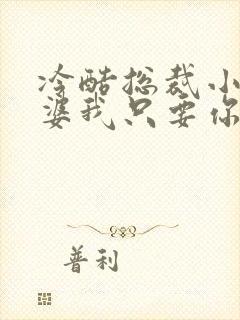 冷酷总裁小
婆我只要你
普利